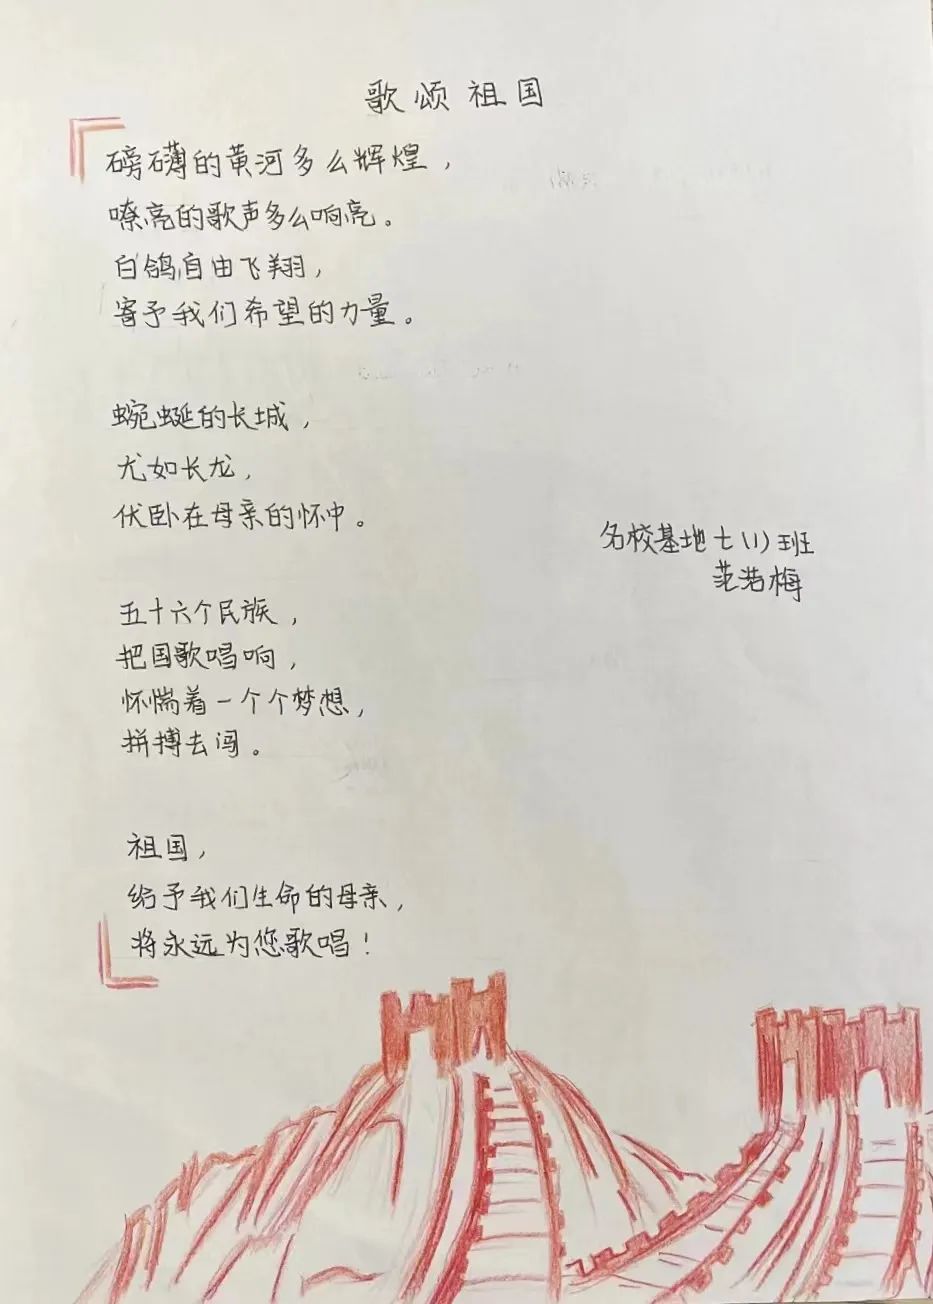 歌颂祖国
磅礴的黄河多么辉煌，
嘹亮的歌声多么响亮。
白鸽自由飞翔，
寄予我们希望的力量。
蜿蜒的长城，
尤如长龙，
伏卧在母亲的怀中。
五十六个民族，
把国歌唱响，
怀惴着一个个梦想，
拼搏去闯。
祖国，
给予我们生命的母亲，
将永远为您歌唱！
名校基地七（1）班
范浩梅